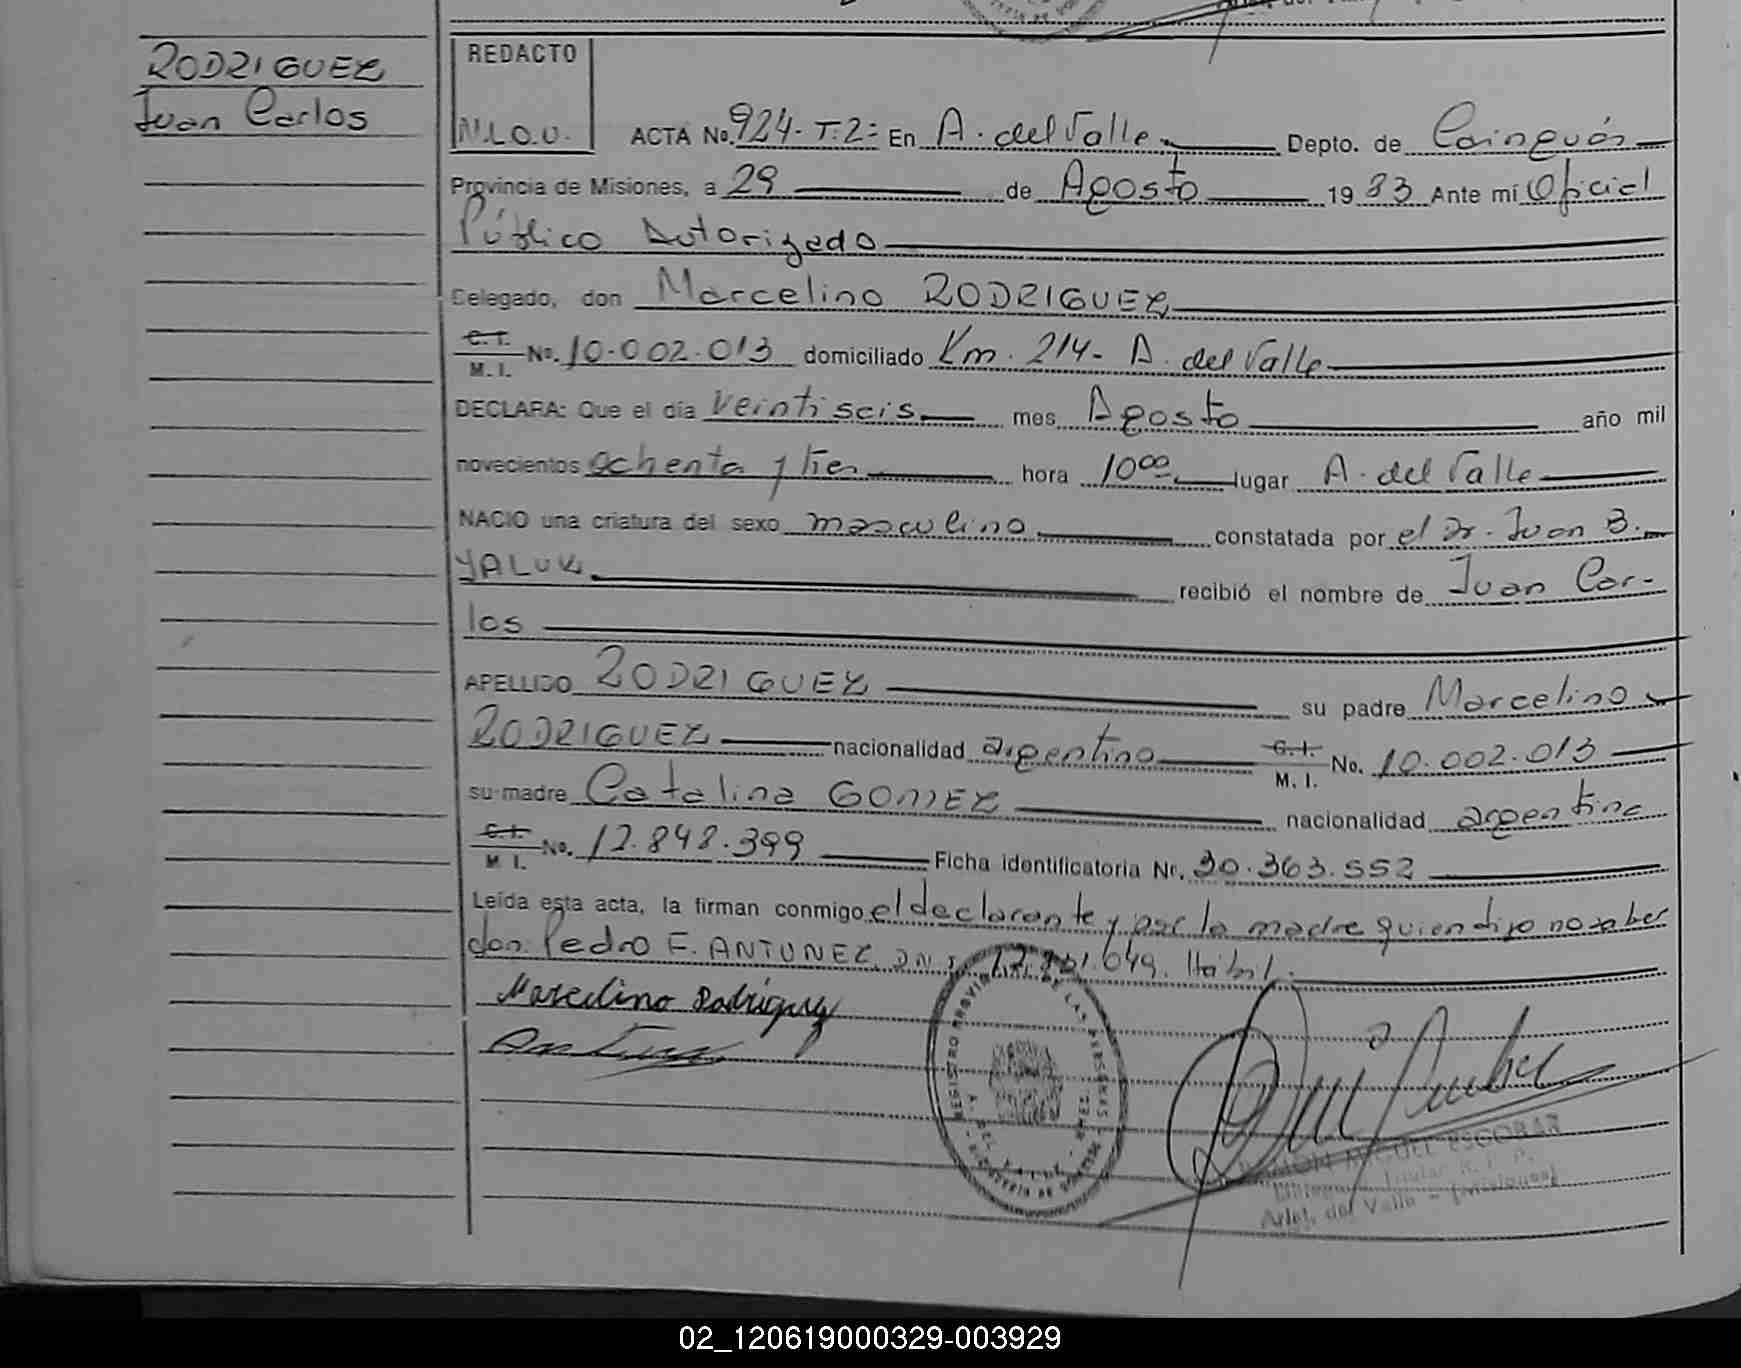 RODRIGUEZ
Juan Carlos
REDACTO
N.L.O.U.
ACTA No. 924- T:2= En A. del Valle Depto. de Cainguás
Provincia de Misiones, a 29 de Agosto 1983 Ante mí Oficial
Público Autorizado
Delegado, don Marcelino RODRIGUEZ
C. I.
M. I.
No. 10.002.013 domiciliado Km. 214- A. del Valle
DECLARA: Que el día veintiseis mes Agosto año mil
novecientos ochenta y tres hora 10oo lugar A. del Valle
NACIO una criatura del sexo masculino constatada por el Dr. Juan B.
YALUK recibió el nombre de Juan Car-
los
APELLIDO RODRIGUEZ su padre Marcelino
RODRIGUEZ nacionalidad argentino C. I.
M. I.
No. 10.002.013
su madre Catalina GOMEZ nacionalidad argentina
C. I.
M. I.
No. 12.848.399 Ficha identificatoria Nr. 30.363.552
Leída esta acta, la firman conmigo el declarante y por la madre quien dijo no saber
don: Pedro F. ANTUNEZ Habil.
Marcelino Rodriguez
Antunez
REGISTRO PROVINCIAL DE LAS PERSONAS
A. DEL VALLE
RAMON MIGUEL ESCOBAR
Delegado Titular R. P. P.
Arist. del Valle - (Misiones)
02_120619000329-003929